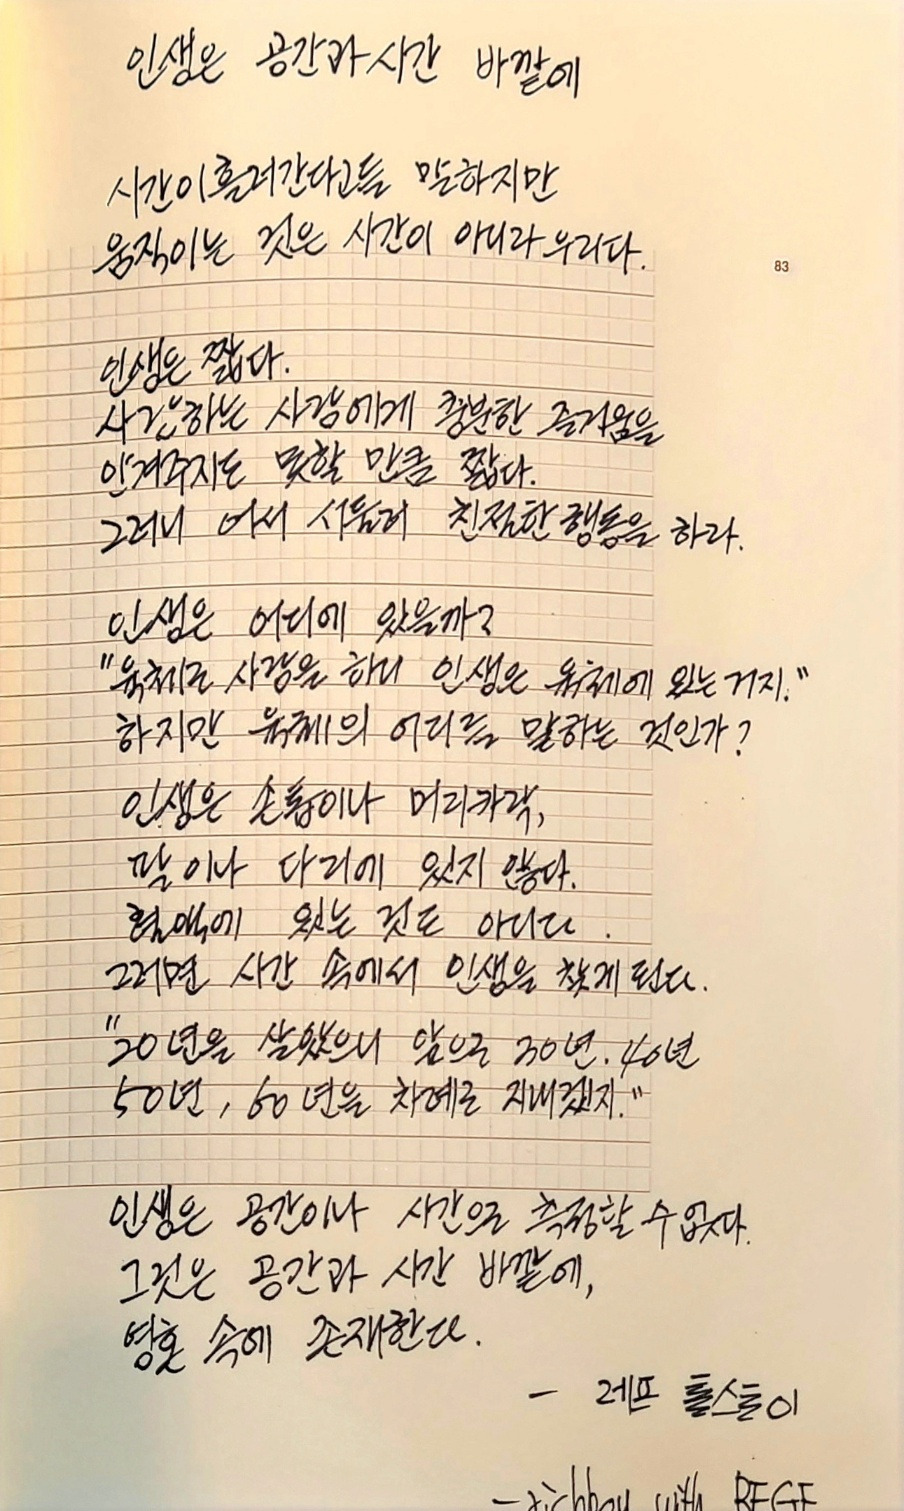 인생은 공간과 시간 바깥에
시간이 흘러간다고들 말하지만
움직이는 것은 시간이 아니라 우리다.
83
인생은 짧다.
사랑하는 사람에게 충분한 즐거움을
안겨주지도 못할 만큼 짧다.
그러니 어서 서둘러 친절한 행동을 하라.
인생은 어디에 있을까?
"육체로 사랑을 하니 인생은 육체에 있는 거지."
하지만 육체의 어디를 말하는 것인가?
인생은 손톱이나 머리카락,
팔이나 다리에 있지 않다.
혈액에 있는 것도 아니다.
그러면 시간 속에서 인생을 찾게 된다.
"20년을 살았으니 앞으로 30년. 40년
50년, 60년을 차례로 지내겠지."
인생은 공간이나 시간으로 측정할 수 없다.
그것은 공간과 시간 바깥에,
영혼 속에 존재한다.
- 레프 톨스토이
with